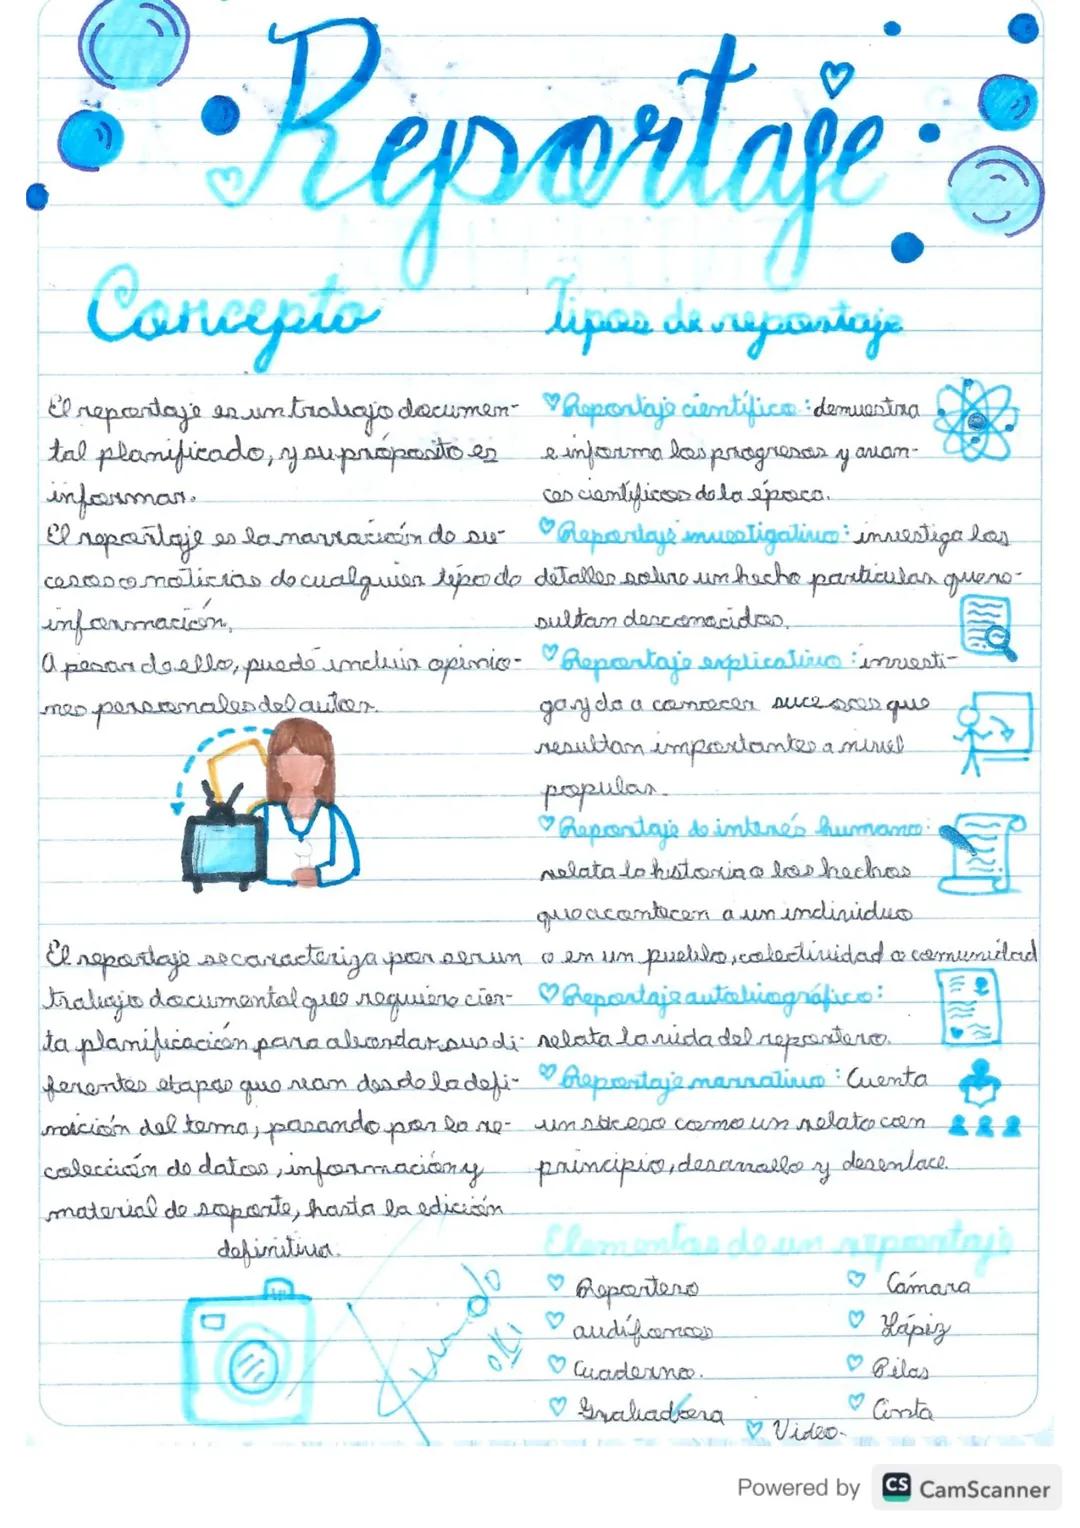 Reportaje
Concepto
El reportaje es un trabajo documen-
tal planificado, y su próposito es
informar.
El reportaje es la narración de su-
cesos o noticias de cualquier tipo de
información,
A pesar de ello, puede incluir opinio-
nes personales del autor.
El reportaje se caracteriza por ser un
trabajo documental que requiere cier-
ta planificación para abordar sus di-
ferentes etapas que van desde la defi-
nición del tema, pasando por la re-
colección de datos, información y
material de soporte, hasta la edición
definitiva.
Tipos de reportaje
Reportaje científico: demuestra
e informa los progresos y avan-
ces científicos de la época.
Reportaje investigativo: investiga los
detalles sobre un hecho particular que re-
sultan desconocidos.
Reportaje explicativo: investi-
ga y da a conocer sucesos que
resultan importantes a nivel
popular.
Reportaje de interés humano:
relata la historia o los hechos
que acontecen a un individuo
o en un pueblo, colectividad o comunidad
Reportaje autobiográfico:
relata la vida del reportero.
Reportaje narrativo: Cuenta
un suceso como un relato con
principio, desarrollo y desenlace.
Elementos de un reportaje
Reportero
audífonos
Cuaderno.
Grabadora
Cámara
Lápiz
Pilas
Cinta
Video.
Powered by CS CamScanner